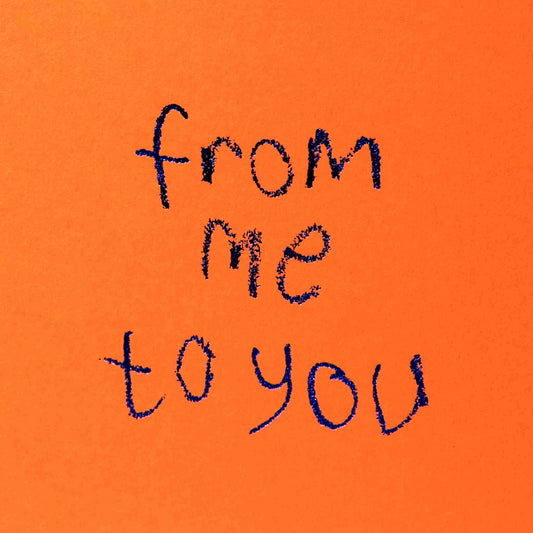 from
me
to you